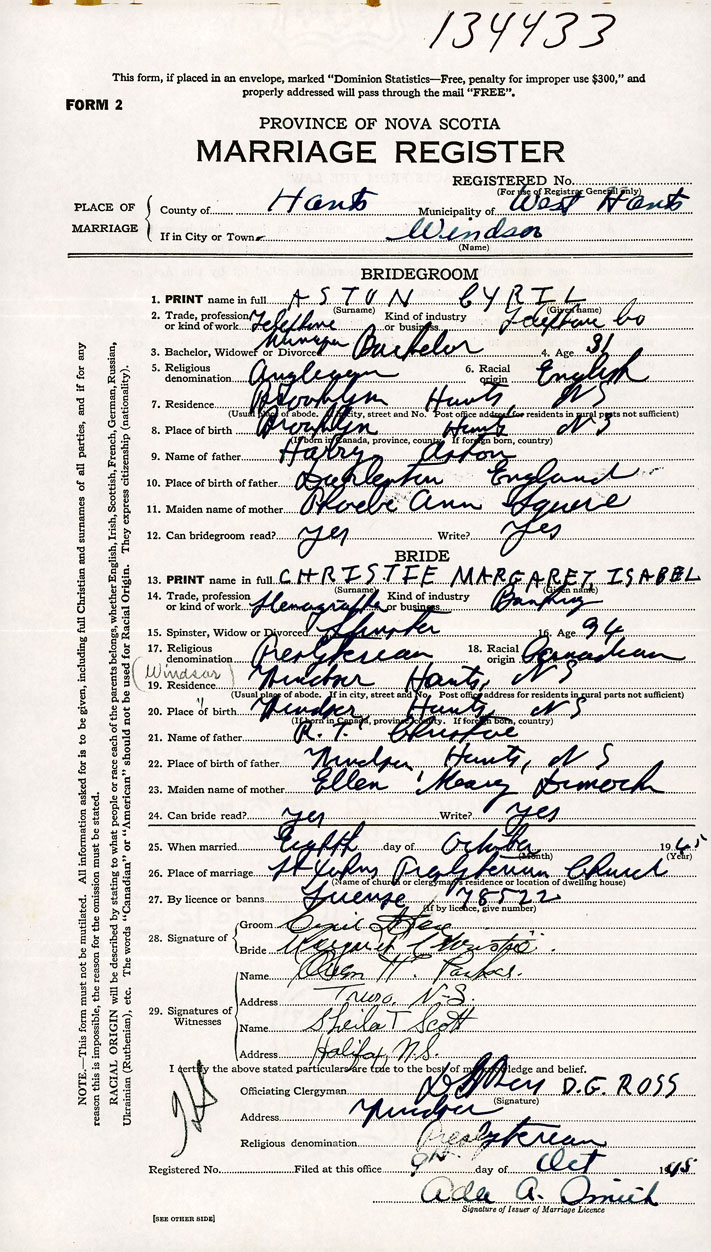 134433
This form, if placed in an envelope, marked "Dominion Statistics—Free, penalty for improper use $300," and
properly addressed will pass through the mail "FREE".
FORM 2
PROVINCE OF NOVA SCOTIA
MARRIAGE REGISTER
REGISTERED No.
(For use of Registrar General only)
PLACE OF MARRIAGE
County of Hants Municipality of West Hants
If in City or Town Windsor
(Name)
BRIDEGROOM
1. PRINT name in full ASTON CYRIL
(Surname) (Given name)
2. Trade, profession or kind of work Telephone Manager Kind of industry or business Telephone Co
3. Bachelor, Widower or Divorced Bachelor 4. Age 31
5. Religious denomination Anglican 6. Racial origin English
7. Residence Brooklyn Hants, NS
(Usual place of abode. If in city, street and No. Post office address for residents in rural parts not sufficient)
8. Place of birth Brooklyn Hants NS
(If born in Canada, province, county. If foreign born, country)
9. Name of father Harry Aston
10. Place of birth of father England
11. Maiden name of mother Phoebe Ann Squire
12. Can bridegroom read? yes Write? Yes
BRIDE
13. PRINT name in full CHRISTIE MARGARET ISABEL
(Surname) (Given name)
14. Trade, profession or kind of work Stenographer Kind of industry or business Banking
15. Spinster, Widow or Divorced Spinster 16. Age
17. Religious denomination Presbyterian 18. Racial origin Canadian
(Windsor)
19. Residence Windsor Hants, NS
(Usual place of abode. If in city, street and No. Post office address for residents in rural parts not sufficient)
20. Place of birth Windsor, Hants NS
"
(If born in Canada, province, county. If foreign born, country)
21. Name of father R. T. Christie
22. Place of birth of father Windsor, Hants, NS
23. Maiden name of mother Ellen Mary Dimock
24. Can bride read? yes Write? yes
25. When married Eighth day of October 1945
(Month) (Year)
26. Place of marriage St Johns Presbyterian Church
(Name of church or clergyman's residence or location of dwelling house)
27. By licence or banns License 78522
(If by licence, give number)
28. Signature of
Groom Cyril Aston
Bride Margaret Christie
29. Signatures of Witnesses
Name Owen H. Parkes.
Address Truro, N-S.
Name Sheila T Scott
Address Halifax, N.S.
I certify the above stated particulars are true to the best of my knowledge and belief.
Officiating Clergyman D G Ross D.G. ROSS
(Signature)
Address Windsor
Religious denomination Presbyterian
Registered No. Filed at this office 9th day of Oct 1945
Ada A. Smith
Signature of Issuer of Marriage Licence
[SEE OTHER SIDE]
NOTE.—This form must not be mutilated. All information asked for is to be given, including full Christian and surnames of all parties, and if for any
reason this is impossible, the reason for the omission must be stated.
RACIAL ORIGIN will be described by stating to what people or race each of the parents belongs, whether English, Irish, Scottish, French, German, Russian,
Ukrainian (Ruthenian), etc. The words "Canadian" or "American" should not be used for Racial Origin. They express citizenship (nationality).